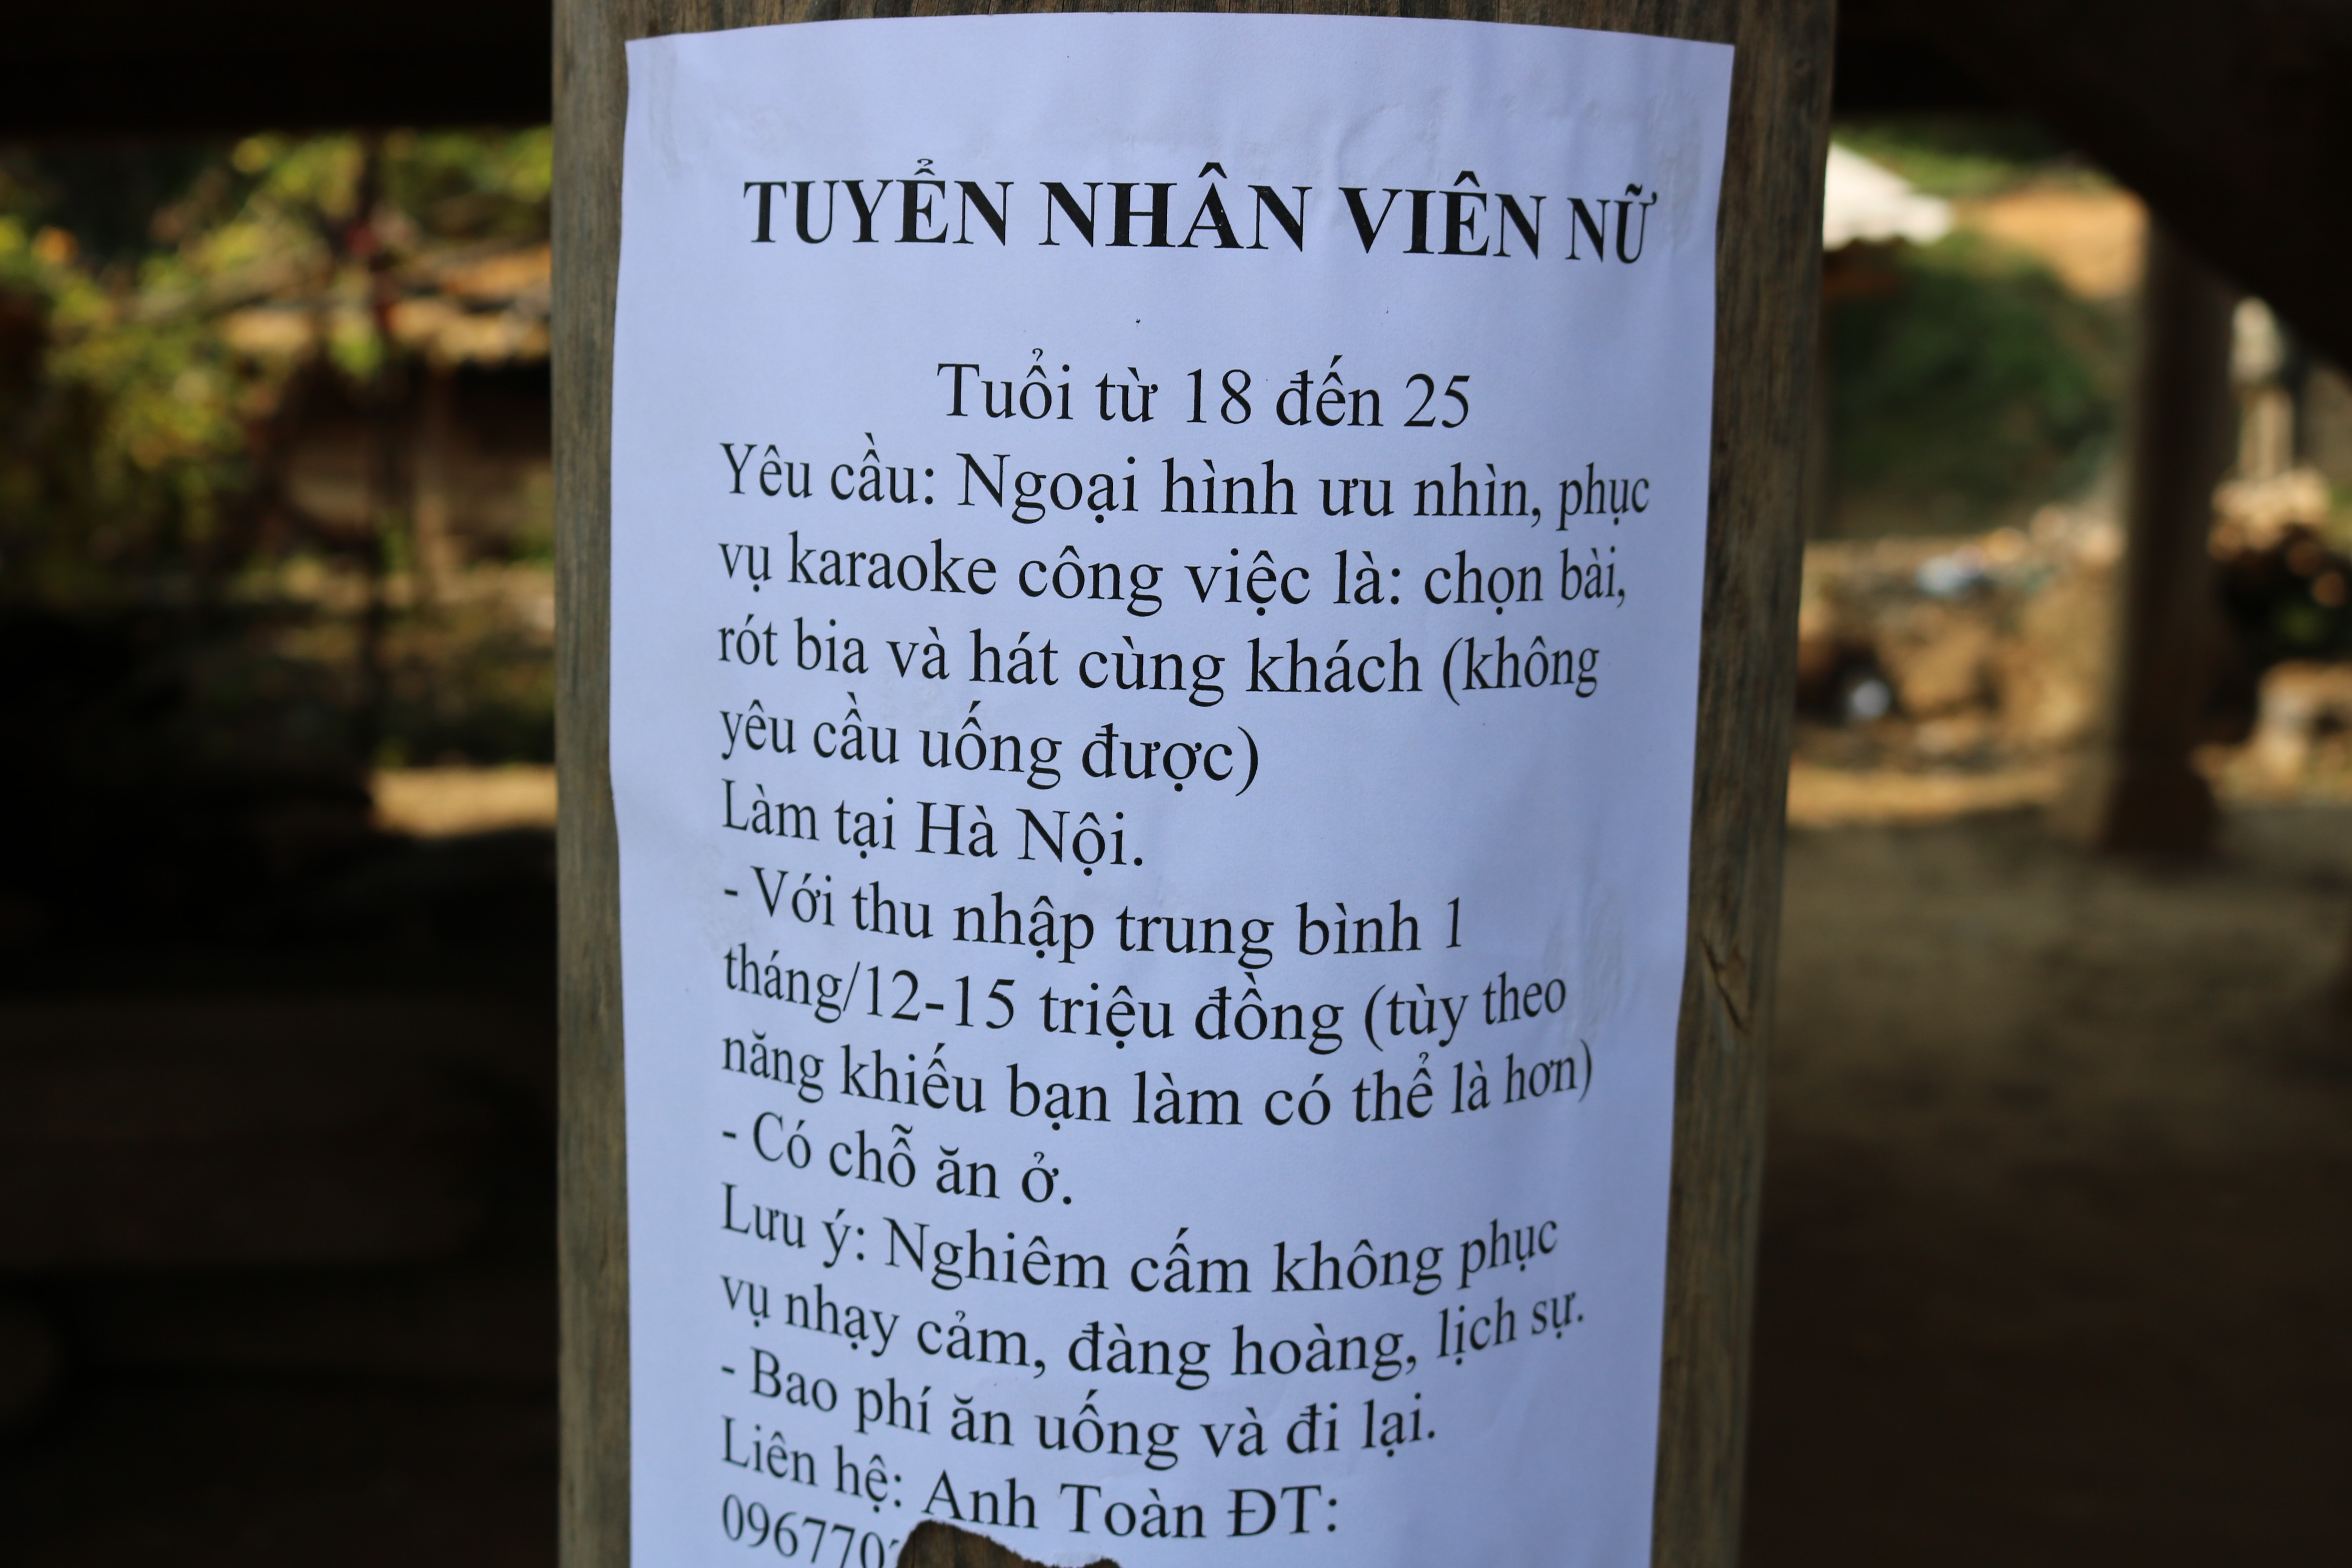 TUYỂN NHÂN VIÊN NỮ
Tuổi từ 18 đến 25
Yêu cầu: Ngoại hình ưu nhìn, phục
vụ karaoke công việc là: chọn bài,
rót bia và hát cùng khách (không
yêu cầu uống được)
Làm tại Hà Nội.
- Với thu nhập trung bình 1
tháng/12-15 triệu đồng (tùy theo
năng khiếu bạn làm có thể là hơn)
- Có chỗ ăn ở.
Lưu ý: Nghiêm cấm không phục
vụ nhạy cảm, đàng hoàng, lịch sự.
- Bao phí ăn uống và đi lại.
Liên hệ: Anh Toàn ĐT:
096770